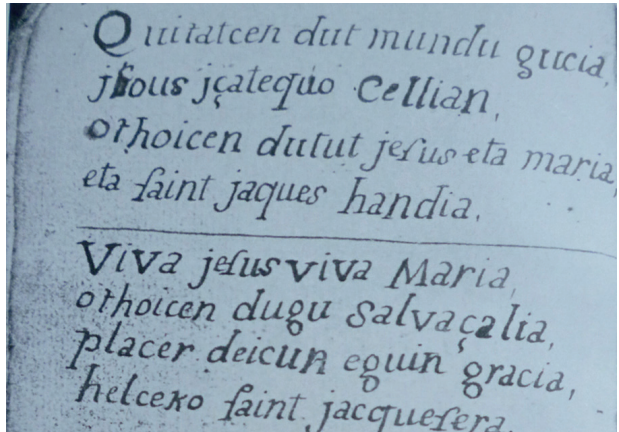 Quitatcen dut mundu gucia,
jhous jçatequo Cellian,
othoicen dutut jeſus eta maria,
eta ſaint jaques handia.
Viva jeſus viva Maria,
othoicen dugu Salvaçalia,
placer deicun eguin gracia,
helceko ſaint jacqueſera.